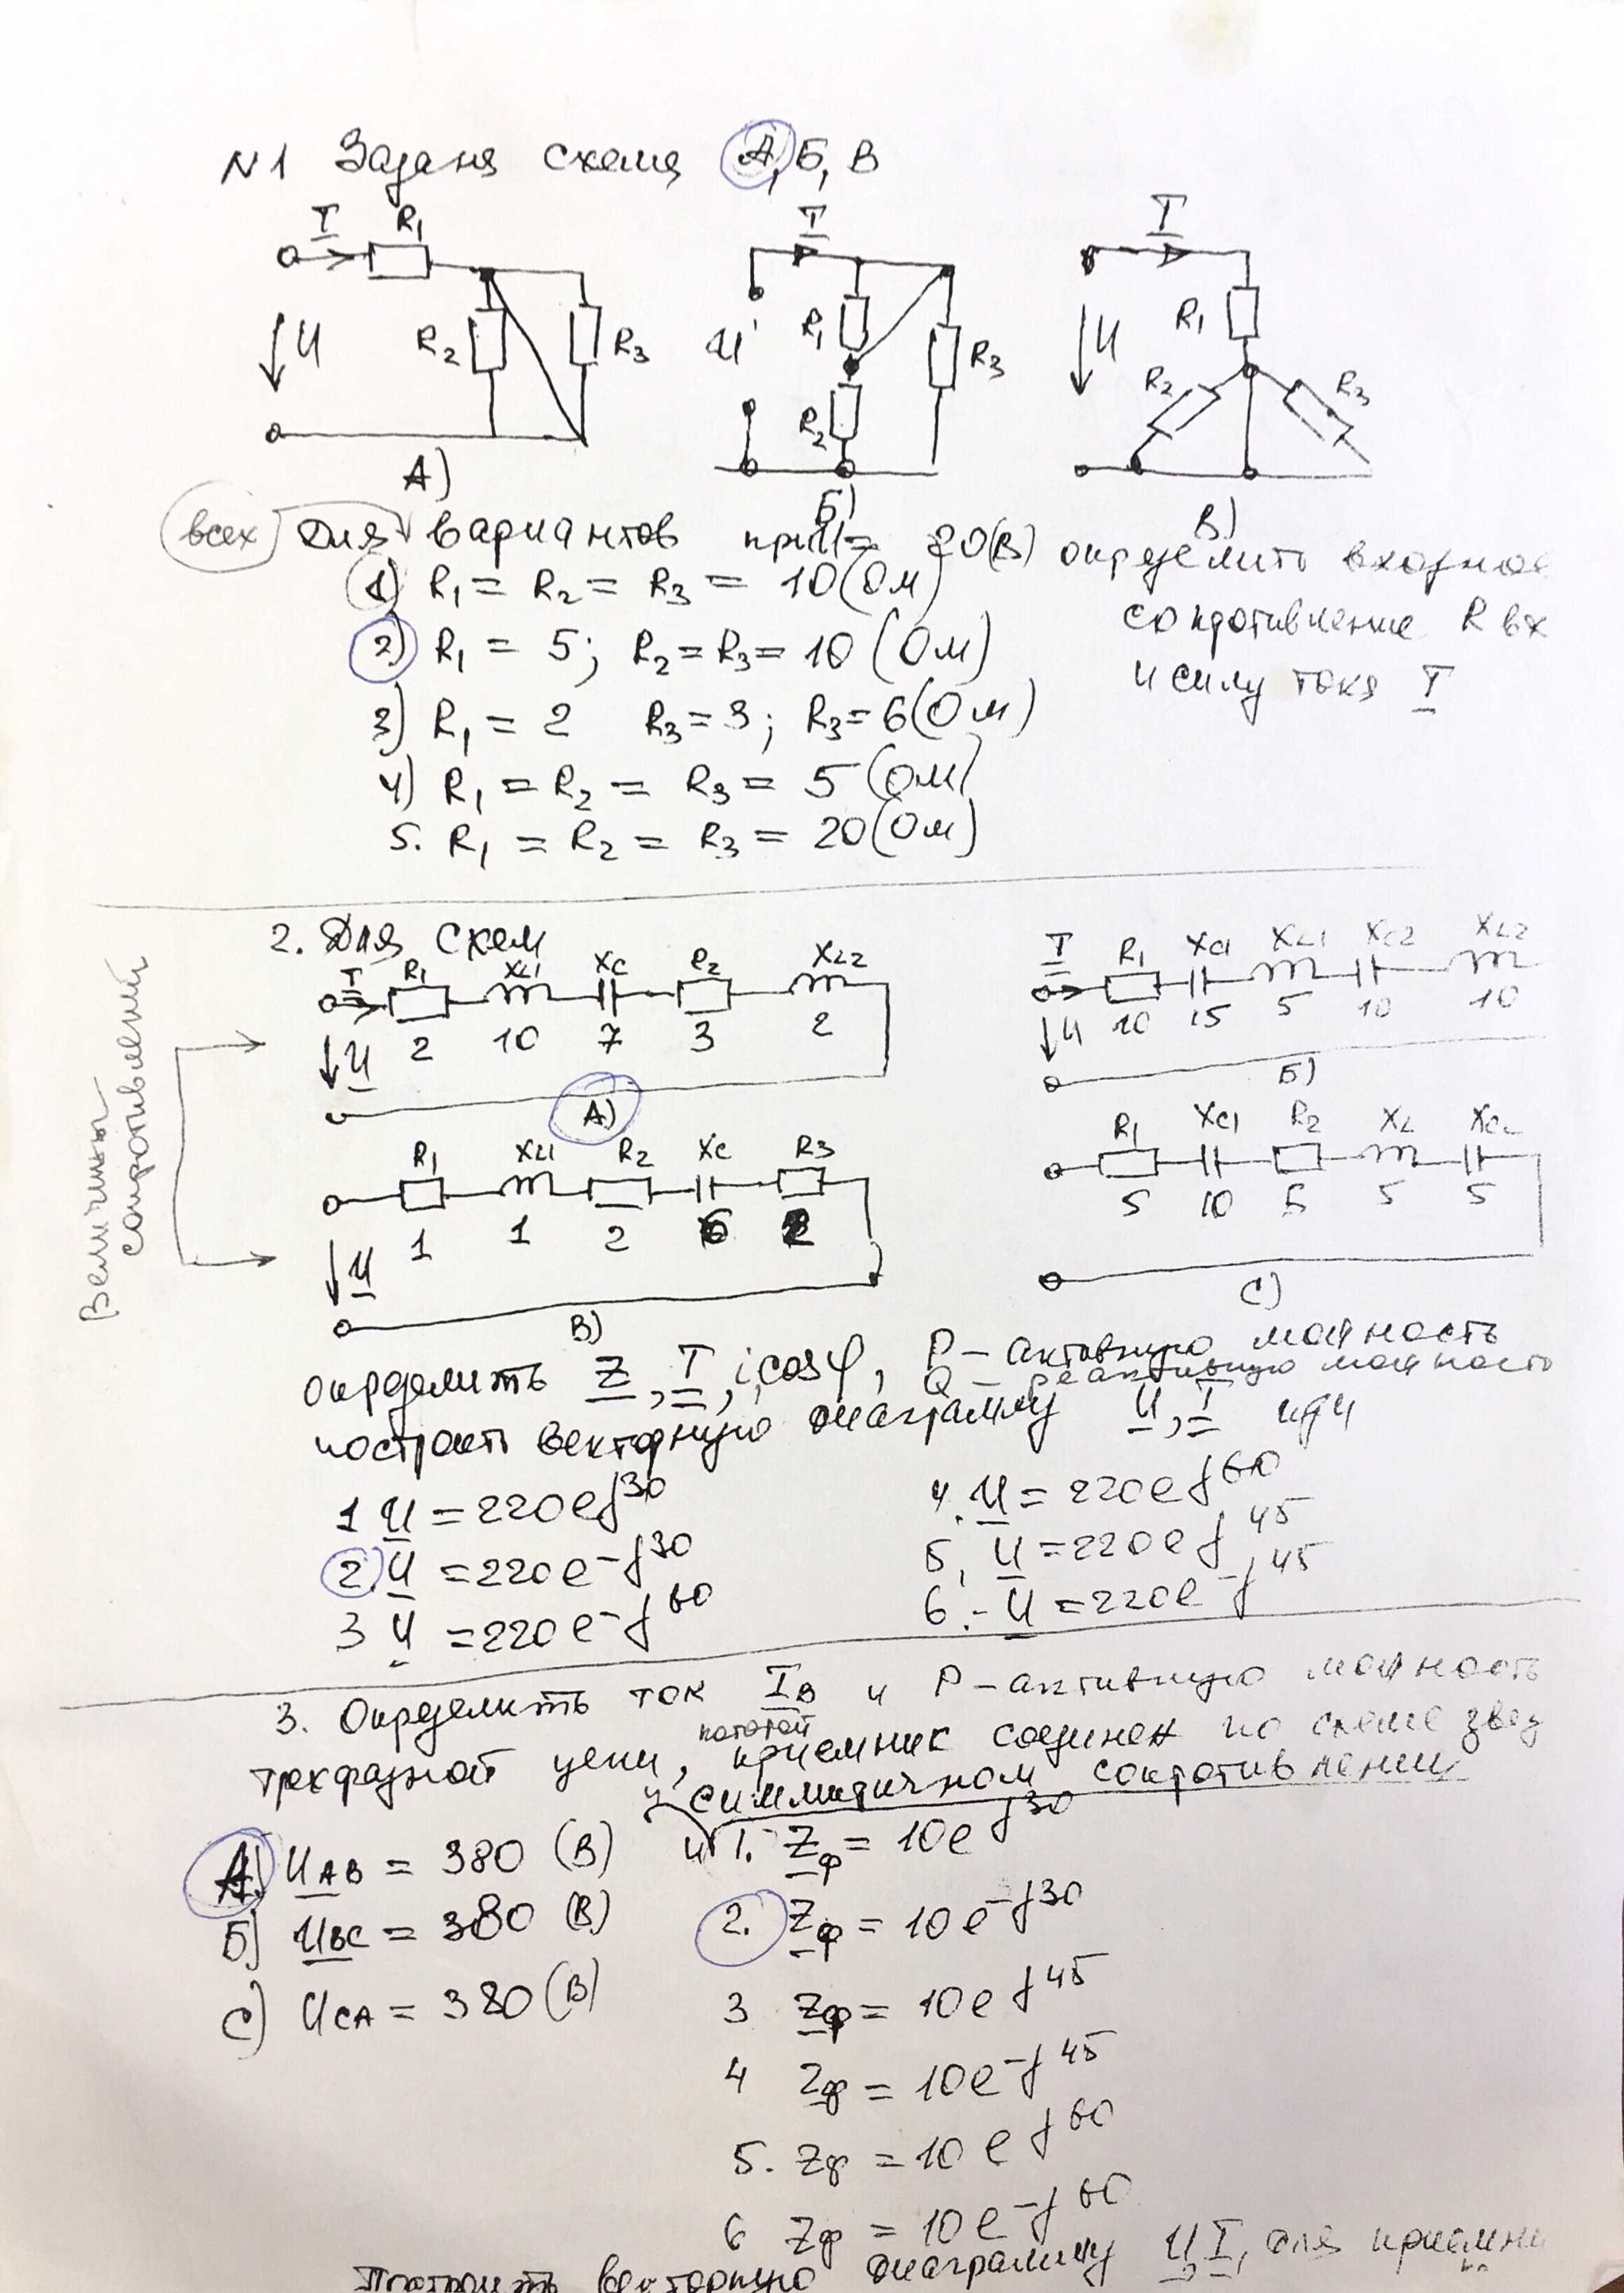 N1 Задана схема А, Б, В
I R1 U R2 R3
А)
I U R1 R2 R3
Б)
I U R1 R2 R3
В)
всех Для вариантов при U= 20(В) определить входное
сопротивление Rвх
и силу тока I
1) R1 = R2 = R3 = 10 (Ом)
2) R1 = 5; R2 = R3 = 10 (Ом)
3) R1 = 2 R3 = 3; R3 = 6 (Ом)
4) R1 = R2 = R3 = 5 (Ом)
5. R1 = R2 = R3 = 20 (Ом)
2. Для схем
Величины
сопротивлений
I R1 XL1 XC R2 XL2
U 2 10 7 3 2
А)
I R1 XC1 XL1 XC2 XL2
U 10 15 5 10 10
Б)
R1 XL1 R2 XC R3
U 1 1 2 6 2
В)
R1 XC1 R2 XL XC2
5 10 5 5 5
С)
определить Z, I, i, cosφ, P – активную мощность
Q – реактивную мощность
построить векторную диаграмму U, I при
1 U = 220e^j30
2. U = 220e^-j30
3 U = 220e^-j60
4. U = 220e^j60
5, U = 220e^j45
6.- U = 220e^-j45
3. Определить ток IB и P – активную мощность
трехфазной цепи, приемник которой соединен по схеме звез
симметричном сопротивлении
А) UAB = 380 (В)
Б) UBC = 380 (В)
С) UCA = 380 (В)
и 1. Zф = 10e^j30
2. Zф = 10e^-j30
3 Zф = 10e^j45
4 Zф = 10e^-j45
5. Zф = 10e^j60
6 Zф = 10e^-j60
Построить векторную диаграмму U, I, для приемни